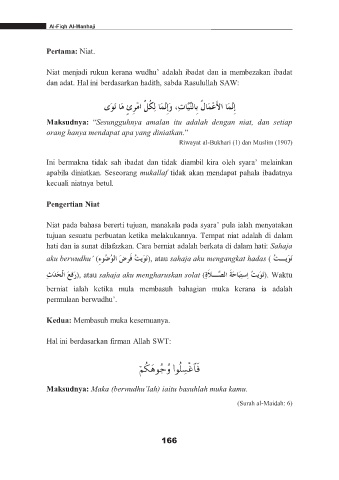 Al-Fiqh Al-Manhaji
Pertama: Niat.
Niat menjadi rukun kerana wudhu' adalah ibadat dan ia membezakan ibadat
dan adat. Hal ini berdasarkan hadith, sabda Rasulullah SAW:
إِنَّمَا الأَعْمَالُ بِالنِّيَّاتِ، وَإِنَّمَا لِكُلِّ امْرِئٍ مَا نَوَى
Maksudnya: “Sesungguhnya amalan itu adalah dengan niat, dan setiap
orang hanya mendapat apa yang diniatkan.”
Riwayat al-Bukhari (1) dan Muslim (1907)
Ini bermakna tidak sah ibadat dan tidak diambil kira oleh syara' melainkan
apabila diniatkan. Seseorang mukallaf tidak akan mendapat pahala ibadatnya
kecuali niatnya betul.
Pengertian Niat
Niat pada bahasa bererti tujuan, manakala pada syara' pula ialah menyatakan
tujuan sesuatu perbuatan ketika melakukannya. Tempat niat adalah di dalam
hati dan ia sunat dilafazkan. Cara berniat adalah berkata di dalam hati: Sahaja
aku berwudhu' (نَوَيْتُ فَرْضَ الْوُضُوءِ), atau sahaja aku mengangkat hadas ( نَوَيْتُ
رَفْعَ الْحَدَثِ), atau sahaja aku mengharuskan solat (نَوَيْتُ اسْتِبَاحَةَ الصَّلاَةِ). Waktu
berniat ialah ketika mula membasuh bahagian muka kerana ia adalah
permulaan berwudhu'.
Kedua: Membasuh muka kesemuanya.
Hal ini berdasarkan firman Allah SWT:
فَٱغْسِلُوا۟ وُجُوهَكُمْ
Maksudnya: Maka (berwudhu'lah) iaitu basuhlah muka kamu.
(Surah al-Maidah: 6)
166